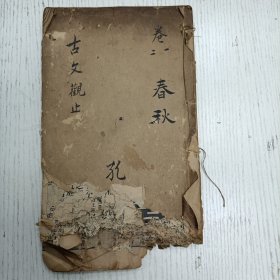 卷一二 春秋
古文觀止
孔